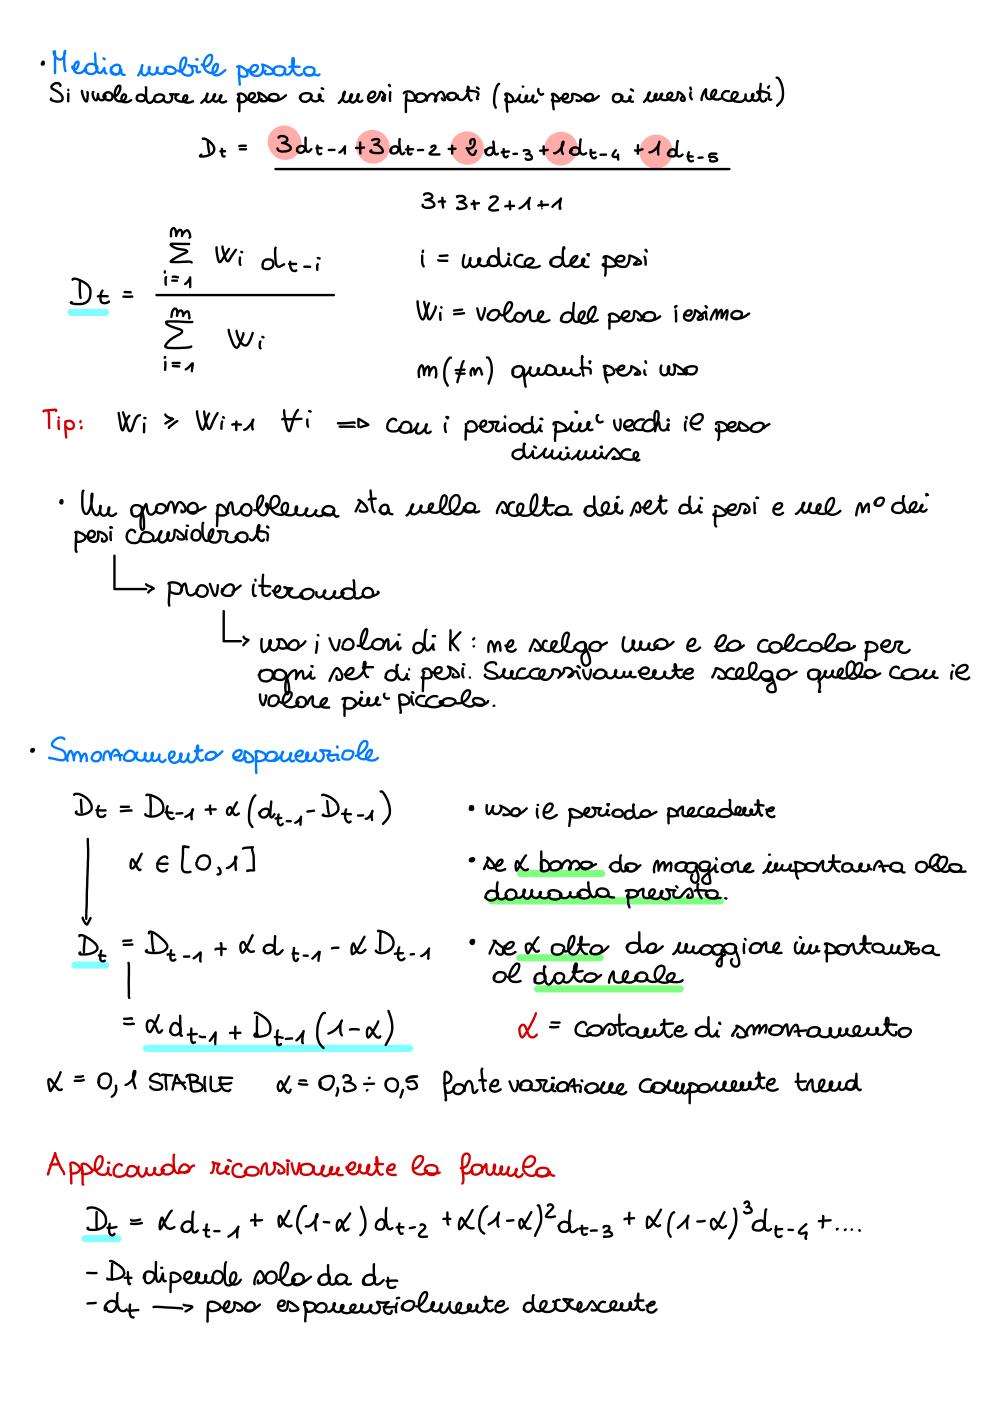 • Media mobile pesata
Si vuole dare un peso ai mesi passati (piu' peso ai mesi recenti)
Dt = 3dt-1 + 3dt-2 + 2dt-3 + 1dt-4 + 1dt-5
3 + 3 + 2 + 1 + 1
m
Σ Wi dt-i
i=1
i = indice dei pesi
Dt =
m
Σ Wi
i=1
Wi = valore del peso iesimo
m (≠n) quanti pesi uso
Tip: Wi ≥ Wi+1 ∀i => con i periodi piu' vecchi il peso
diminuisce
• Un grosso problema sta nella scelta dei set di pesi e nel n° dei
pesi considerati
↳ provo iterando
↳ uso i valori di K : ne scelgo uno e lo calcolo per
ogni set di pesi. Successivamente scelgo quello con il
valore piu' piccolo.
• Smorzamento esponenziale
Dt = Dt-1 + α (dt-1 - Dt-1)
• uso il periodo precedente
α ∈ [0,1]
• se α basso do maggiore importanza alla
domanda prevista.
Dt = Dt-1 + α dt-1 - α Dt-1
• se α alto do maggiore importanza
al dato reale
= α dt-1 + Dt-1 (1-α)
α = costante di smorzamento
α = 0,1 STABILE α = 0,3 ÷ 0,5 forte variazione componente trend
Applicando ricorsivamente la formula
Dt = α dt-1 + α(1-α) dt-2 + α(1-α)² dt-3 + α(1-α)³ dt-4 + ....
- Dt dipende solo da dt
- dt → peso esponenzialmente decrescente